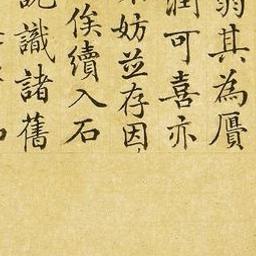 其為贋
潤可喜亦
妨並存因
俟續入石
識諸舊